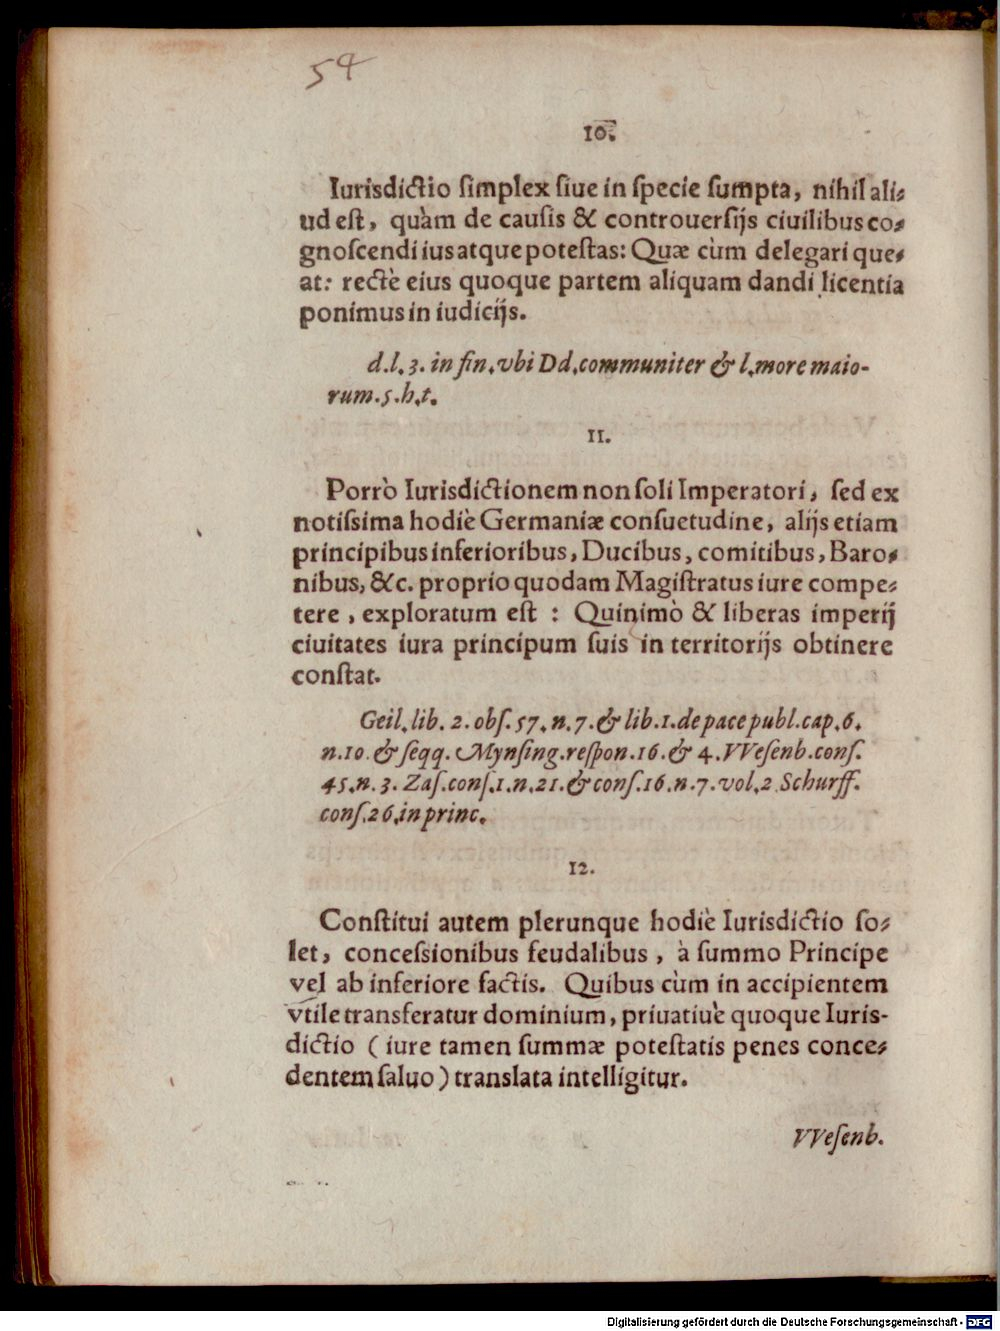 54
10.
Iurisdictio ſimplex ſiue in ſpecie ſumpta, nihil ali⸗
ud eſt, quàm de cauſis & controuerſijs ciuilibus co⸗
gnoſcendi ius atque poteſtas: Quæ cùm delegari que⸗
at: rectè eius quoque partem aliquam dandi licentia
ponimus in iudicijs.
d.l. 3. in fin. vbi Dd. communiter & l. more maio-
rum. 5. h. t.
11.
Porrò Iurisdictionem non ſoli Imperatori, ſed ex
notiſsima hodiè Germaniæ conſuetudine, alijs etiam
principibus inferioribus, Ducibus, comitibus, Baro⸗
nibus, &c. proprio quodam Magiſtratus iure compe⸗
tere, exploratum eſt : Quinimò & liberas imperij
ciuitates iura principum ſuis in territorijs obtinere
conſtat.
Geil. lib. 2. obſ. 57. n. 7. & lib. 1. de pace publ. cap. 6.
n. 10. & ſeqq. Mynſing. reſpon. 16. & 4. VVeſenb. conſ.
45. n. 3. Zaſ. conſ. 1. n. 21. & conſ. 16. n. 7. vol. 2 Schurff.
conſ. 26. in princ.
12.
Conſtitui autem plerunque hodiè Iurisdictio ſo⸗
let, conceſsionibus feudalibus, à ſummo Principe
vel ab inferiore factis. Quibus cùm in accipientem
vtile transferatur dominium, priuatiuè quoque Iuris-
dictio ( iure tamen ſummæ poteſtatis penes conce⸗
dentem ſaluo ) translata intelligitur.
VVeſenb.
Digitalisierung gefördert durch die Deutsche Forschungsgemeinschaft - DFG